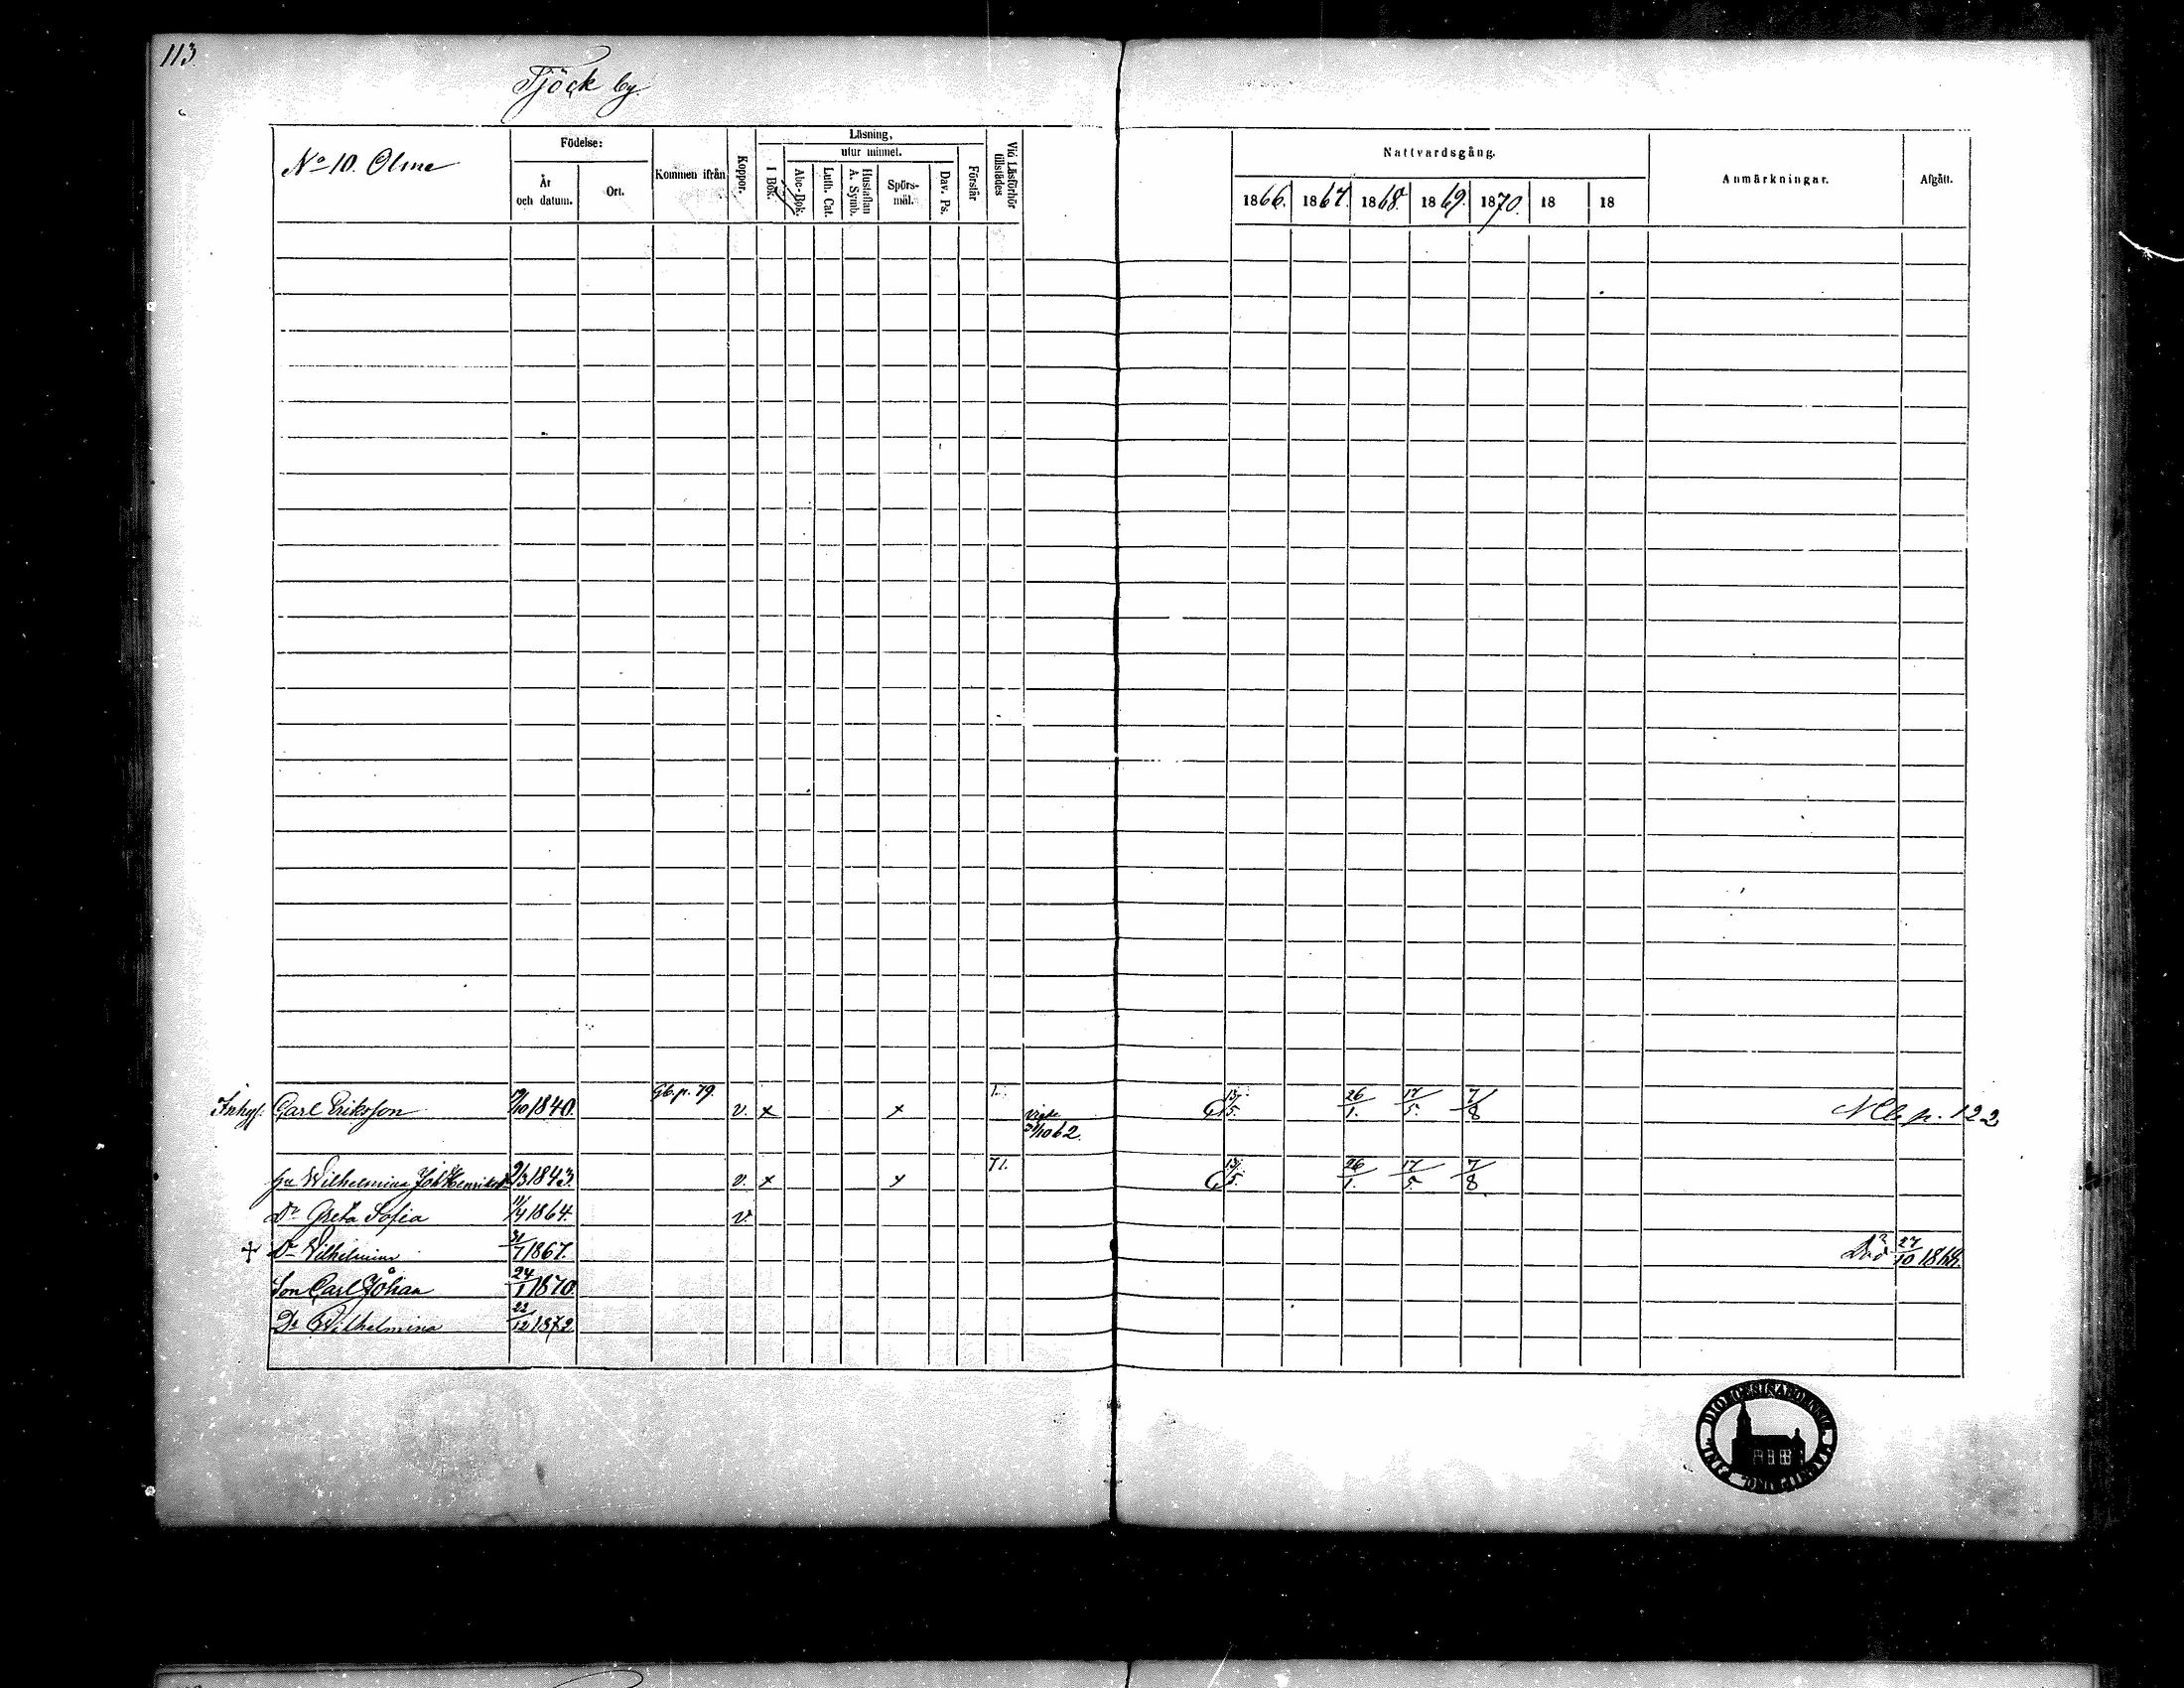 113.
Tjöck by.
No 10. Olme
Födelse:
År och datum.
Ort.
Kommen ifrån
Koppor.
Läsning,
I Bok.
utur minnet.
Abc-Bok.
Luth. Cat.
Hustaflan A. Symb.
Spörs-mål.
Dav. Ps.
Förstår
Vid Läsförhör tillstädes
Nattvardsgång.
1866. 1867. 1868. 1869. 1870. 18 18
Anmärkningar.
Afgått.
Inhys. Carl Eriksson 1840. Gb. p. 79. v. x x 1. 13/5. 26/1. 17/5. 7/8 Nb p. 122
vigde 62.
hu Wilhelmina Joh Henriksdr 2/3 1843. v. x x 71. 13/5. 26/1. 17/5. 7/8
Dr Greta Sofia 11/4 1864. v.
+ Dr Wilhelmina 31/7 1867. Död 27/10 1868.
Son Carl Johan 24/1 1870.
Dr Wilhelmina 22/12 1872